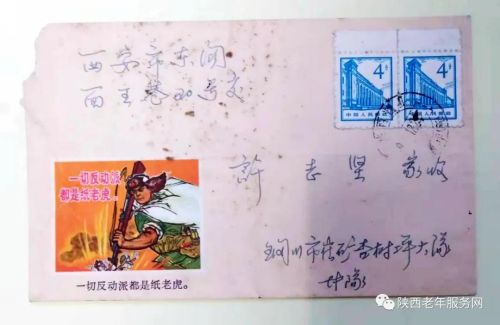 西安市东関
西王巷20号交
4分
4分
中国人民邮政
中国人民邮政
許志坚 家收
一切反动派
都是纸老虎!
铜川市桃矿杏树坪大隊
一切反动派都是纸老虎。
陕西老年服务网